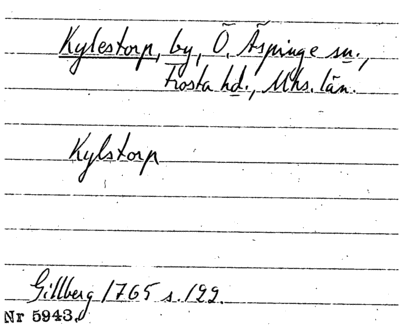 Kylestorp, by, Ö. Äspinge sn.,
Frosta hd., Mhs. län.
Kylstorp
Gillberg 1765 s. 122.
Nr 5943.